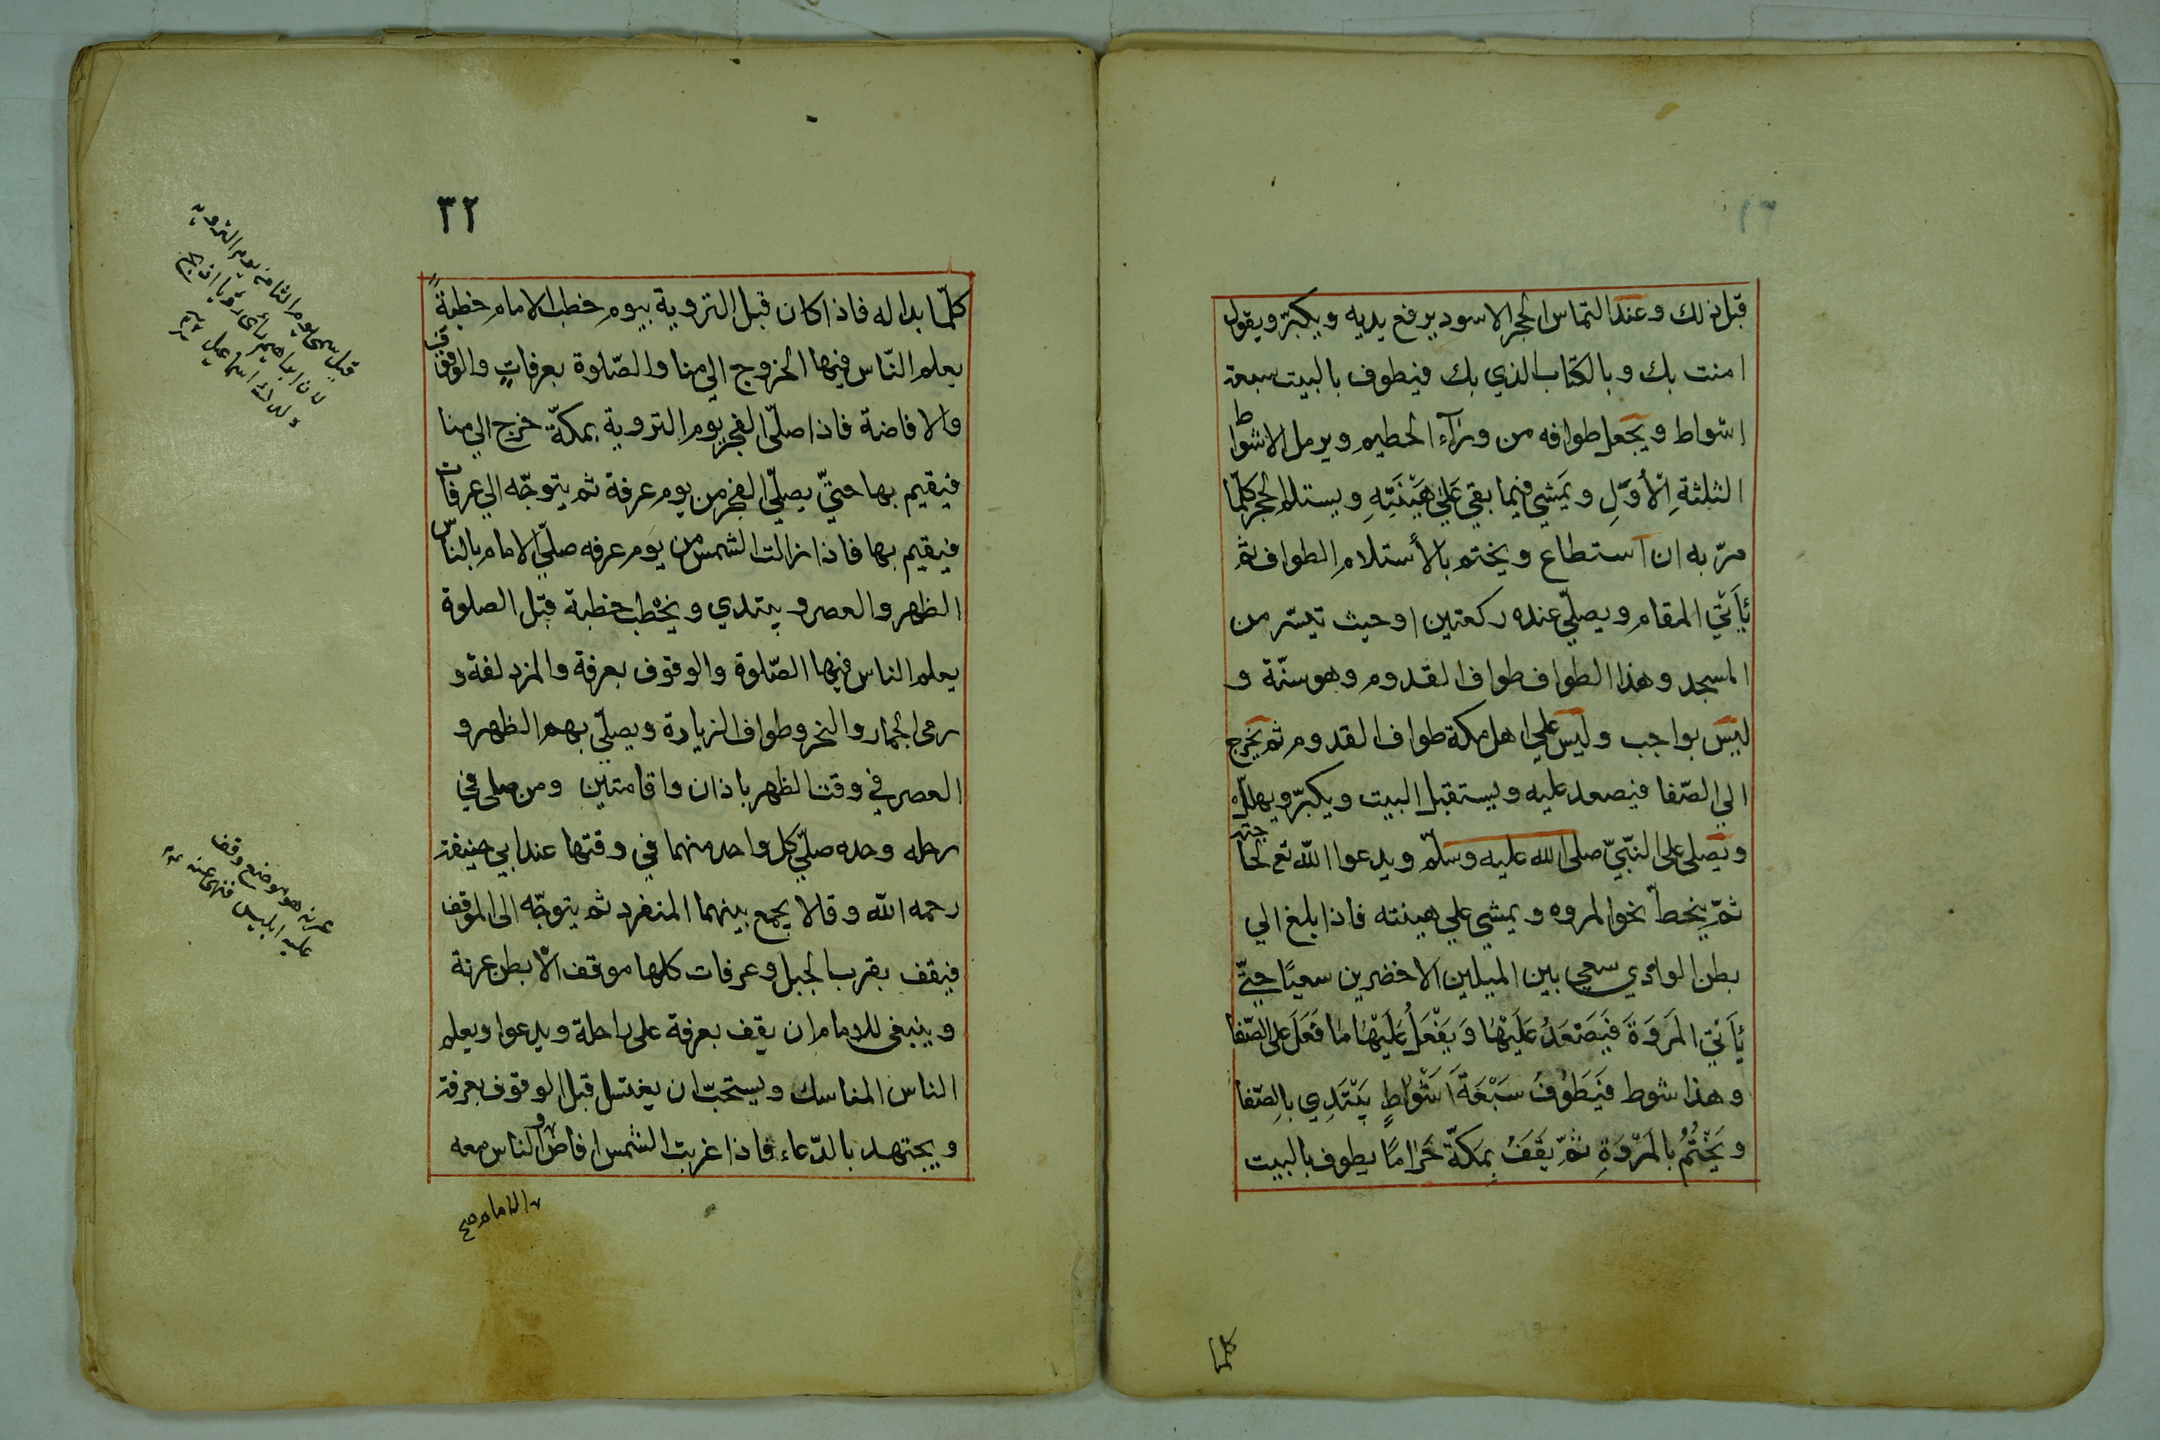 قبل ذلك وعند التماس الحجر الاسود يرفع يديه ويكبّر ويقول
امنت بك وبالكتاب الذي بك فيطوف بالبيت سبعة
اشواط ويجعل طوافه من ورآء الحطيم ويرمل الاشواط
الثلثةِ الأُوَلِ ويَمشي فيما بقي عَلي هَيْنَتِهِ ويستلم الحجر كلّما
مرّ به ان استطاع ويختم بالأستلام الطواف ثم
يَأتي المقام ويصلّي عنده ركعتين او حيث تيسّر من
المسجد وهذا الطواف طواف القدوم وهو سنّة و
ليس بواجب وليس علي اهل مكة طواف القدوم ثم يخرج
الي الصّفا فيصعد عليه ويستقبل البيت ويكبّر ويهلّل
ويصلي علي النبّيّ صلى الله عليه وسلّم ويدعوا الله تع لحاجته
ثمّ ينحطّ نحو المروه ويمشي علي هينته فاذا بلغ الي
بطن الوادي سعي بين الميلين الاخضرين سعيًا حتّي
يَأتي المَروَةَ فَيَصْعَدُ عَلَيْهَا وَيَفْعَلُ عَلَيْهَا مَا فَعَلَ علي الصّفا
وهذا شوط فَيَطُوْفُ سَبْعَةَ اَشْوَاطٍ يَبْتَدِي بِالصّفا
وَيَخْتُمُ بالمَرْوَةِ ثمّ يَقَفُ بِمَكّةَ حَرَامًا يطوف بالبيت
كلما
٣٢
كلّما بدا له فاذا كان قبل التروية بيوم خطب الامام خطبةً
يعلم النّاس فيها الخروج الي منا والصّلوة بعرفاتٍ والوقوف
والافاضة فاذا صلّي الفجر يوم التروية بمكّة خرج الي منا
فيقيم بها حتيّ يصلّي الفجر من يوم عرفة ثم يتوجّه الي عرفات
فيقيم بها فاذا زالت الشمس من يوم عرفه صلّي الامام بالناس
الظهر والعصر ويبتدي ويخطب خطبة قبل الصلوة
يعلم الناس فيها الصّلوة والوقوف بعرفة والمزدلفة و
رمى الجمار والنحر وطواف الزيادة ويصلّي بهم الظهر و
العصر في وقت الظهر باذان واقامتين ومن صلى في
رحله وحده صلّي كل واحد منهما في وقتها عند ابي حنيفة
رحمه الله وقالا يجمع بينهما المنفرد ثم يتوجّه الى الموقف
فيقف بقرب الجبل وعرفات كلها موقف الّا بطن عرنة
وينبغى للامام ان يقف بعرفة على راحلة ويدعوا ويعلم
الناس المناسك ويستحبّ ان يغتسل قبل الوقوف بعرفة
ويجتهد بالدّعاء فاذا غربت الشمس افاض والناس معه
الامام صح
قيل سمى يوم الثامن يوم التروية
لان ابراهيم رأى رؤيا ان يذبح
ولده اسماعيل
عرنه هو موضع وقف
عليه ابليس فنهى عنه